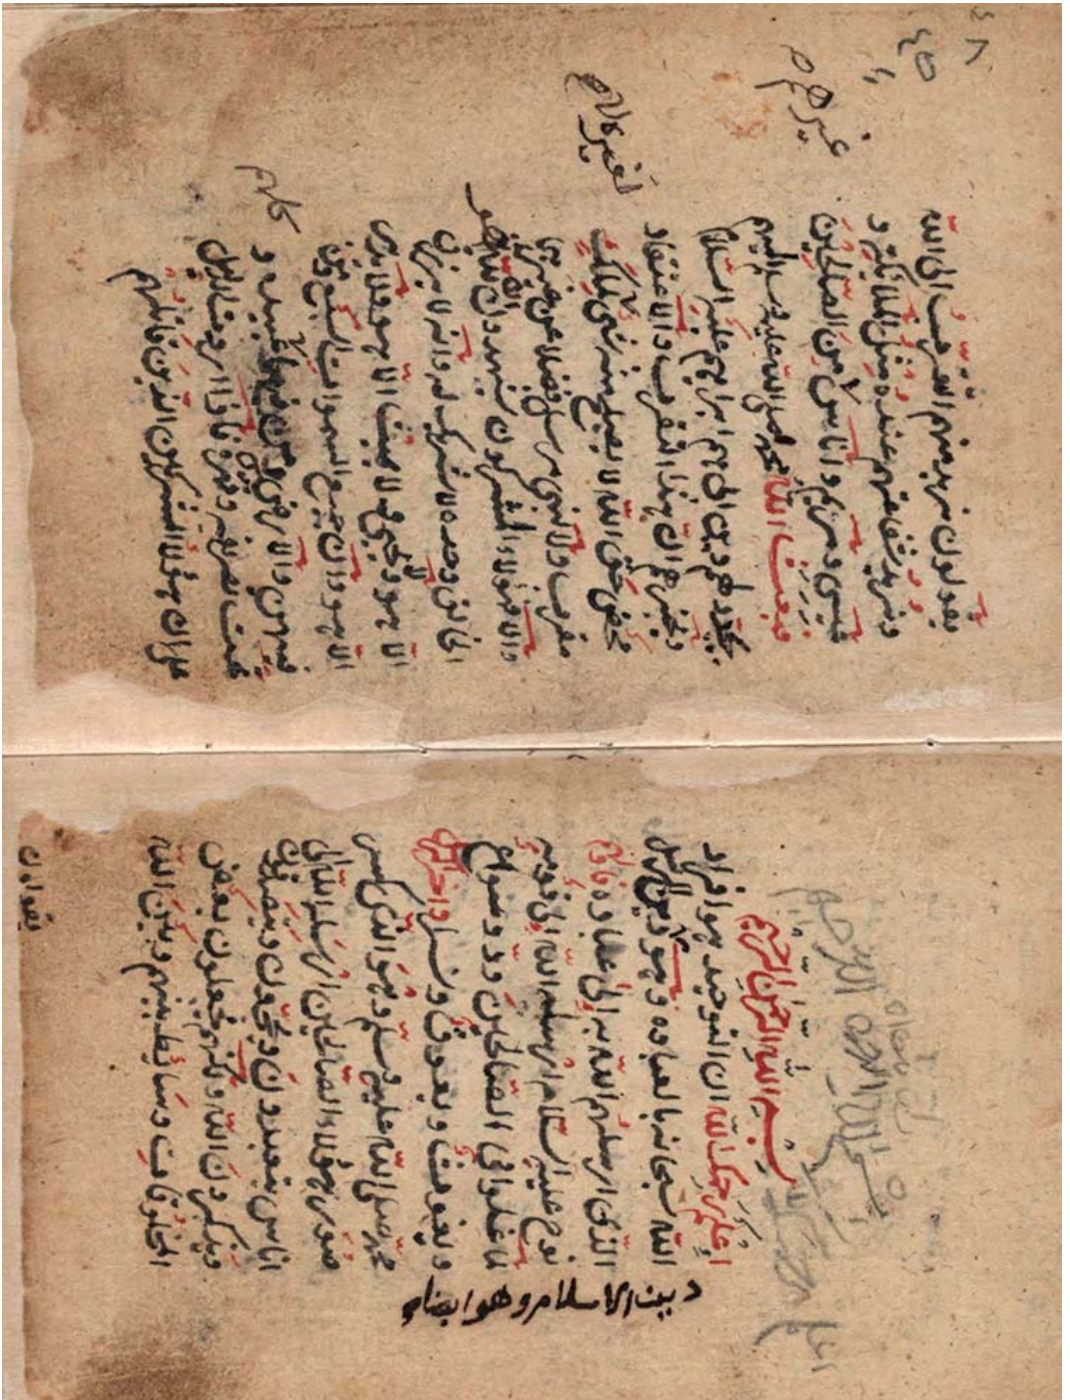 بسم الله الرحمن الرحيم
اعلم رحمك الله ان التوحيد هو افراد
الله سبحانه بالعباده وهو دين الرسل
الذي ارسلهم الله به الى عباده فاولهم
نوح عليه السلام ارسله الله الى قومه
لما غلوا في الصالحين ود وسواع
ويغوث ويعوق ونسر واخر الرسل
محمد صلى الله عليه وسلم وهو الذي كسر
صور هؤلاء الصالحين ارسله الله الى
اناس يتعبدون ويحجون ويتصدقون
ويذكرون الله ولكنهم يجعلون بعض
المخلوقات وسائط بينهم وبين الله
يقولون
دين الاسلام وهو ايضاء
بسم الله الرحمن الرحيم
يقولون نريد منهم التقرب الى الله
ونريد شفاعتهم عنده مثل الملائكة و
عيسى ومريم واناس من الصالحين
فبعث الله محمد صلى الله عليه وسلم اليهم
يجدد لهم دين ابراهيم عليه السلام
ويخبرهم ان هذا التقرب والاعتقاد
محض حق الله لا يصلح منه شي لملك
مقرب ولا لنبي مرسل فضلا عن غيرهما
والا فهؤلاء المشركون يشهدون ان الله هو
الخالق وحده لا شريك له وانه لا يرزق
الا هو ولا يحيي ولا يميت الا هو ولا يدبر
الا هو وان جميع السموات السبع ومن
فيهن والارض ومن فيها عبيده و
تحت تصرفه وقهره فاذا اردت الدليل
على ان هؤلاء المشركين الذين قاتلهم